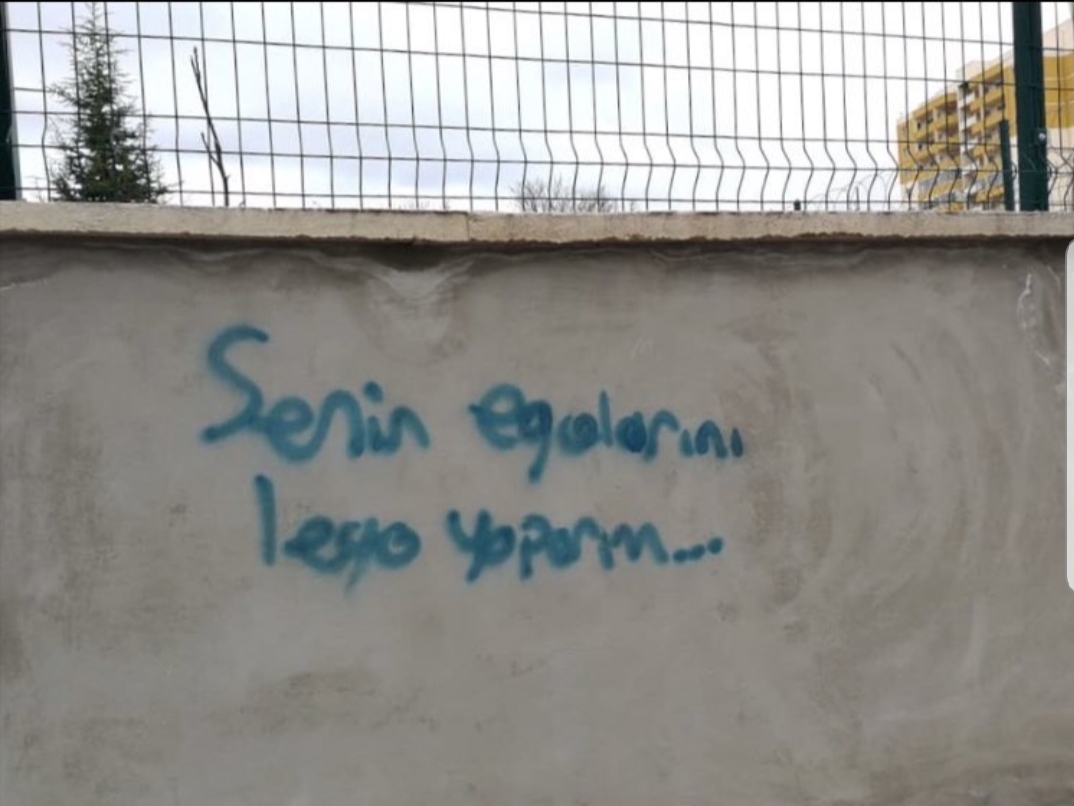 Senin egolarını
lego yaparım...